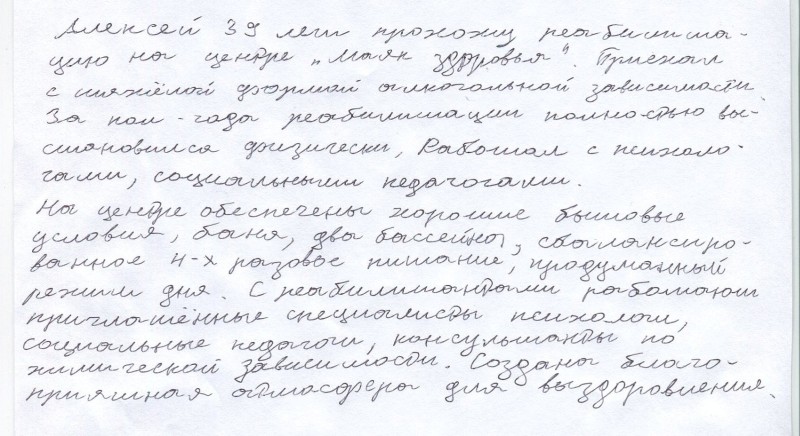 Алексей 39 лет прохожу реабилита-
цию на центре „Маяк здоровья". Приехал
с тяжёлой формой алкогольной зависимости.
За пол-года реабилитации полностью вы-
становился физически, Работал с психоло-
гами, социальными педагогами.
На центре обеспечены хорошие бытовые
условия, баня, два бассейна, сбалансиро-
ванное 4-х разовое питание, продуманный
режим дня. С реабилитантами работают
приглашённые специалисты психологи,
социальные педагоги, консультанты по
химической зависимости. Создана благо-
приятная атмосфера для выздоровления.